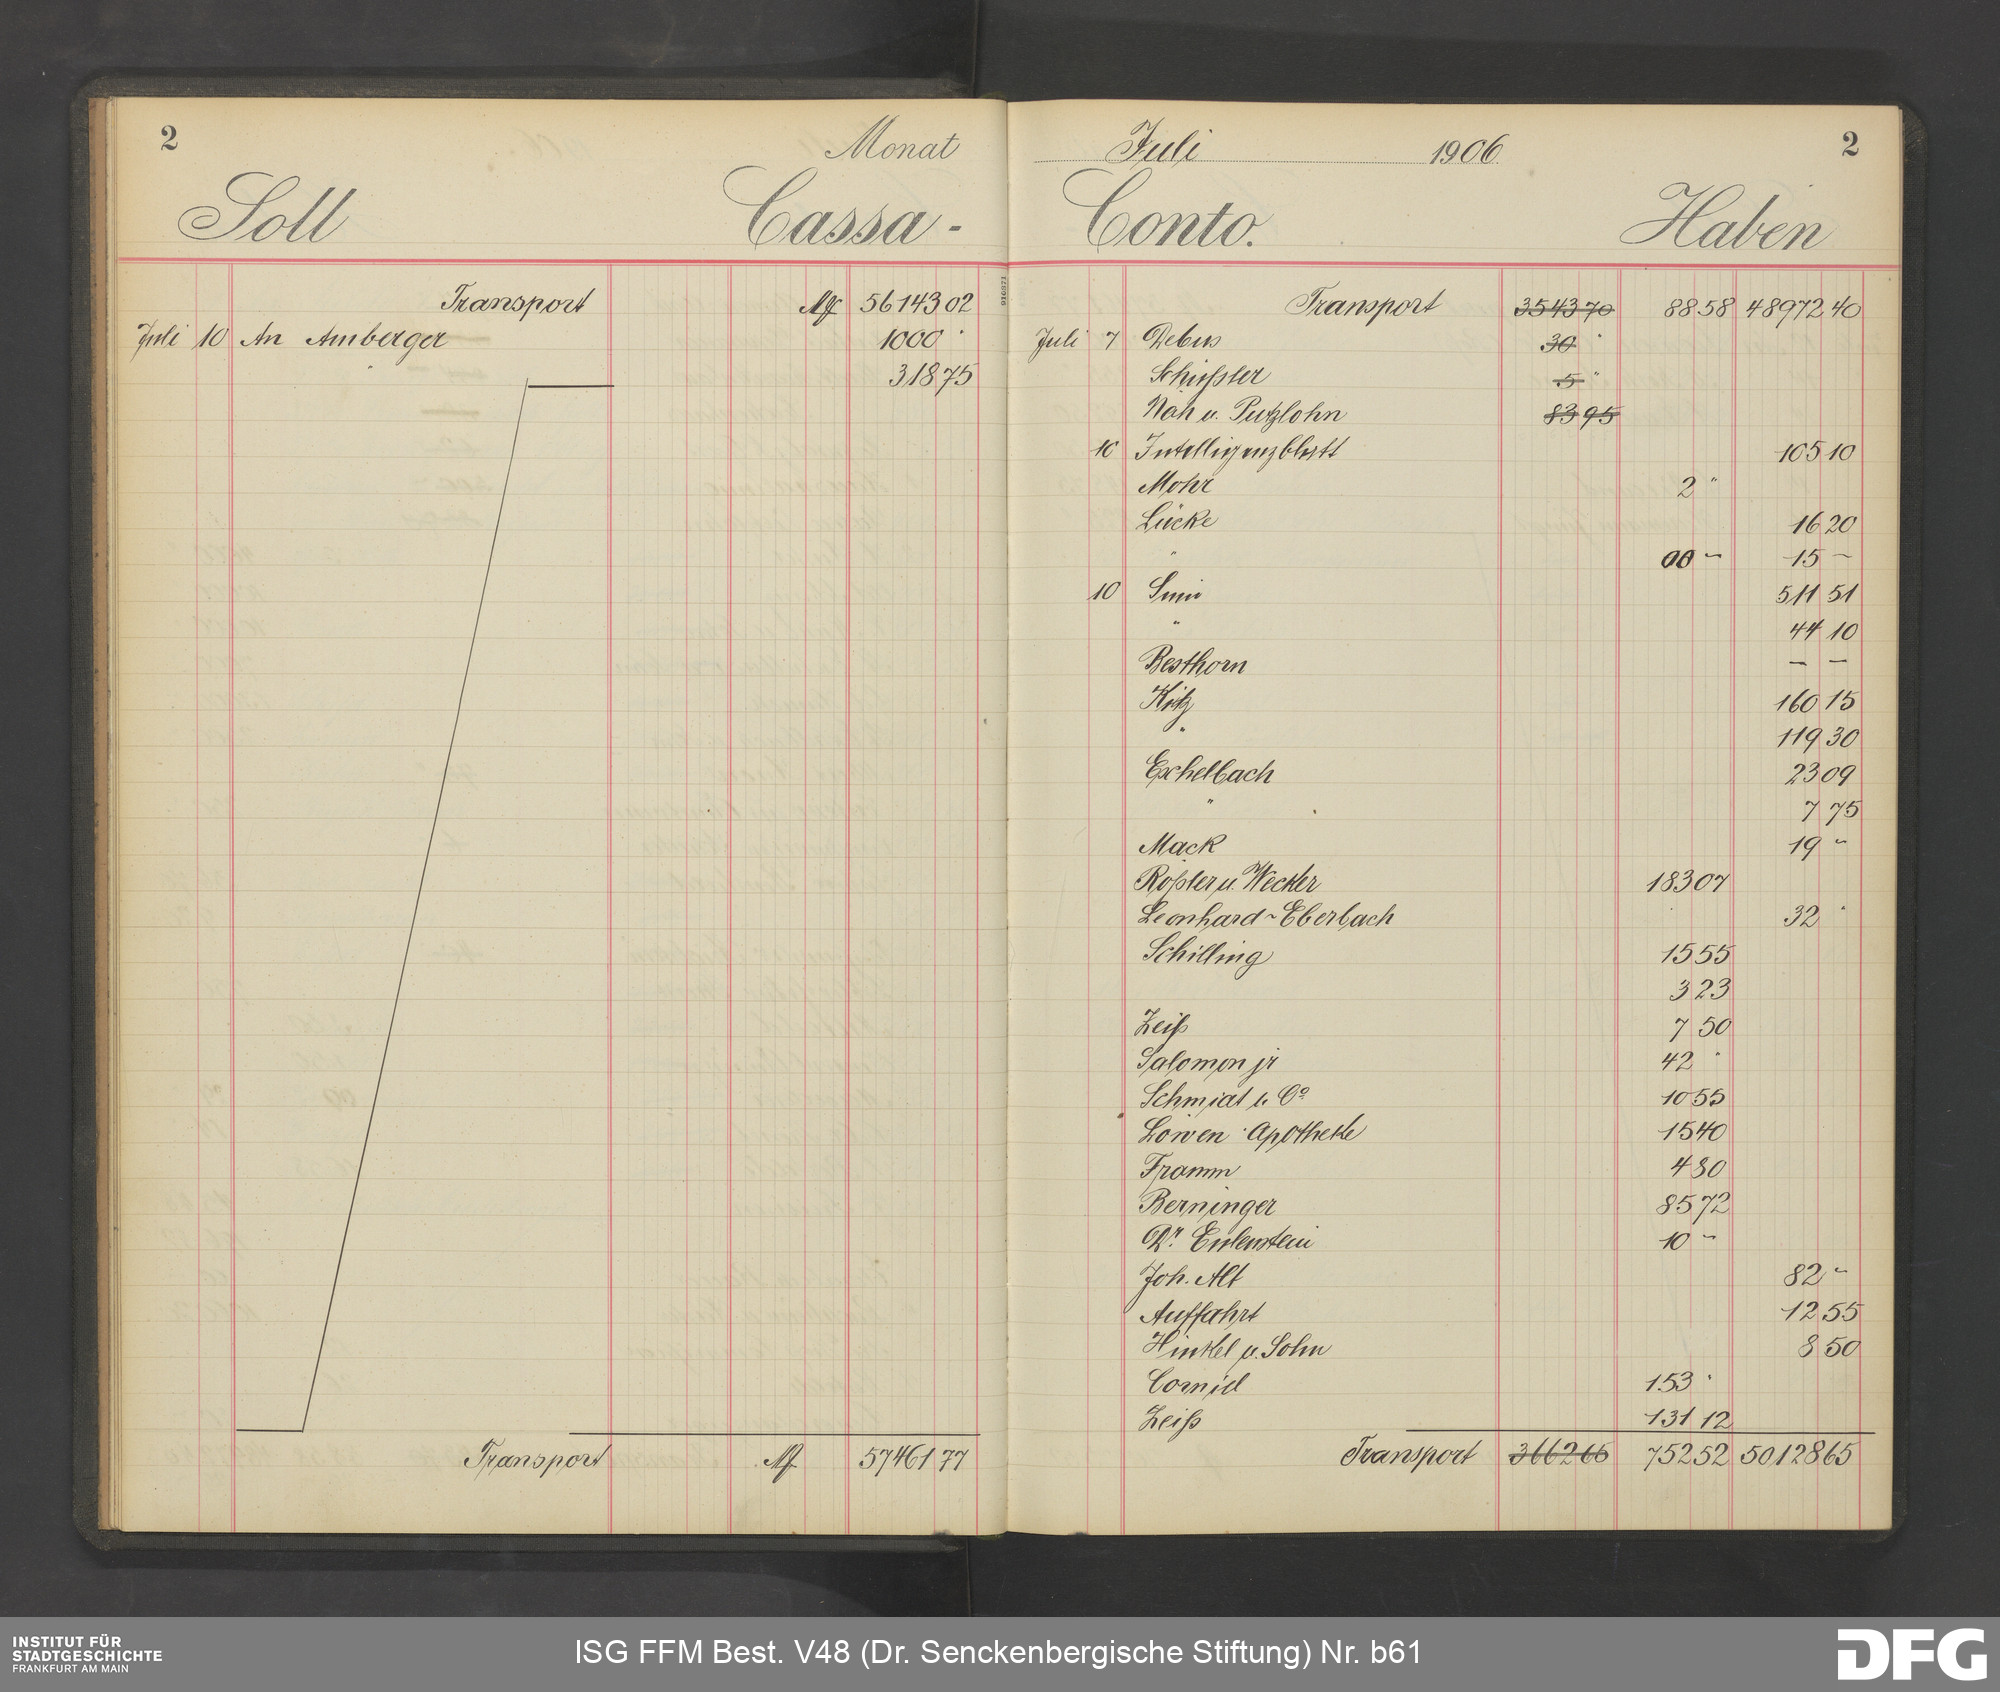 2
Monat
Soll Cassa-
Transport M 56143 02
Juli 10 An Amberger 1000 "
318 75
Transport M 57461 77
Juli 1906 2
Conto. Haben
910871
Transport 3543 70 88 58 48972 40
Juli 7 Debus 30 "
Schüßler 5 "
Näh u. Putzlohn 83 95
10 Intelligenzblatt 105 10
Mohr 2 "
Lücke 16 20
" 00 - 15 -
10 Sinn 511 51
" 44 10
Besthorn - -
Kitz 160 15
" 119 30
Eschelbach 23 09
" 7 75
Mack 19 "
Rößler u. Wecker 183 07
Leonhard-Eberbach 32 "
Schilling 15 55
3 23
Zeiß 7 50
Salomon jr 42 "
Schmidt u. Co 10 55
Löwen-Apotheke 15 40
Framm 4 80
Berninger 85 72
Dr. Eulenstein 10 -
Joh. Alt 82 "
Auffahrt 12 55
Hinkel u. Sohn 8 50
Cornill 153 "
Zeiß 131 12
Transport 3662 65 752 52 50128 65
INSTITUT FÜR
STADTGESCHICHTE
FRANKFURT AM MAIN
ISG FFM Best. V48 (Dr. Senckenbergische Stiftung) Nr. b61
DFG